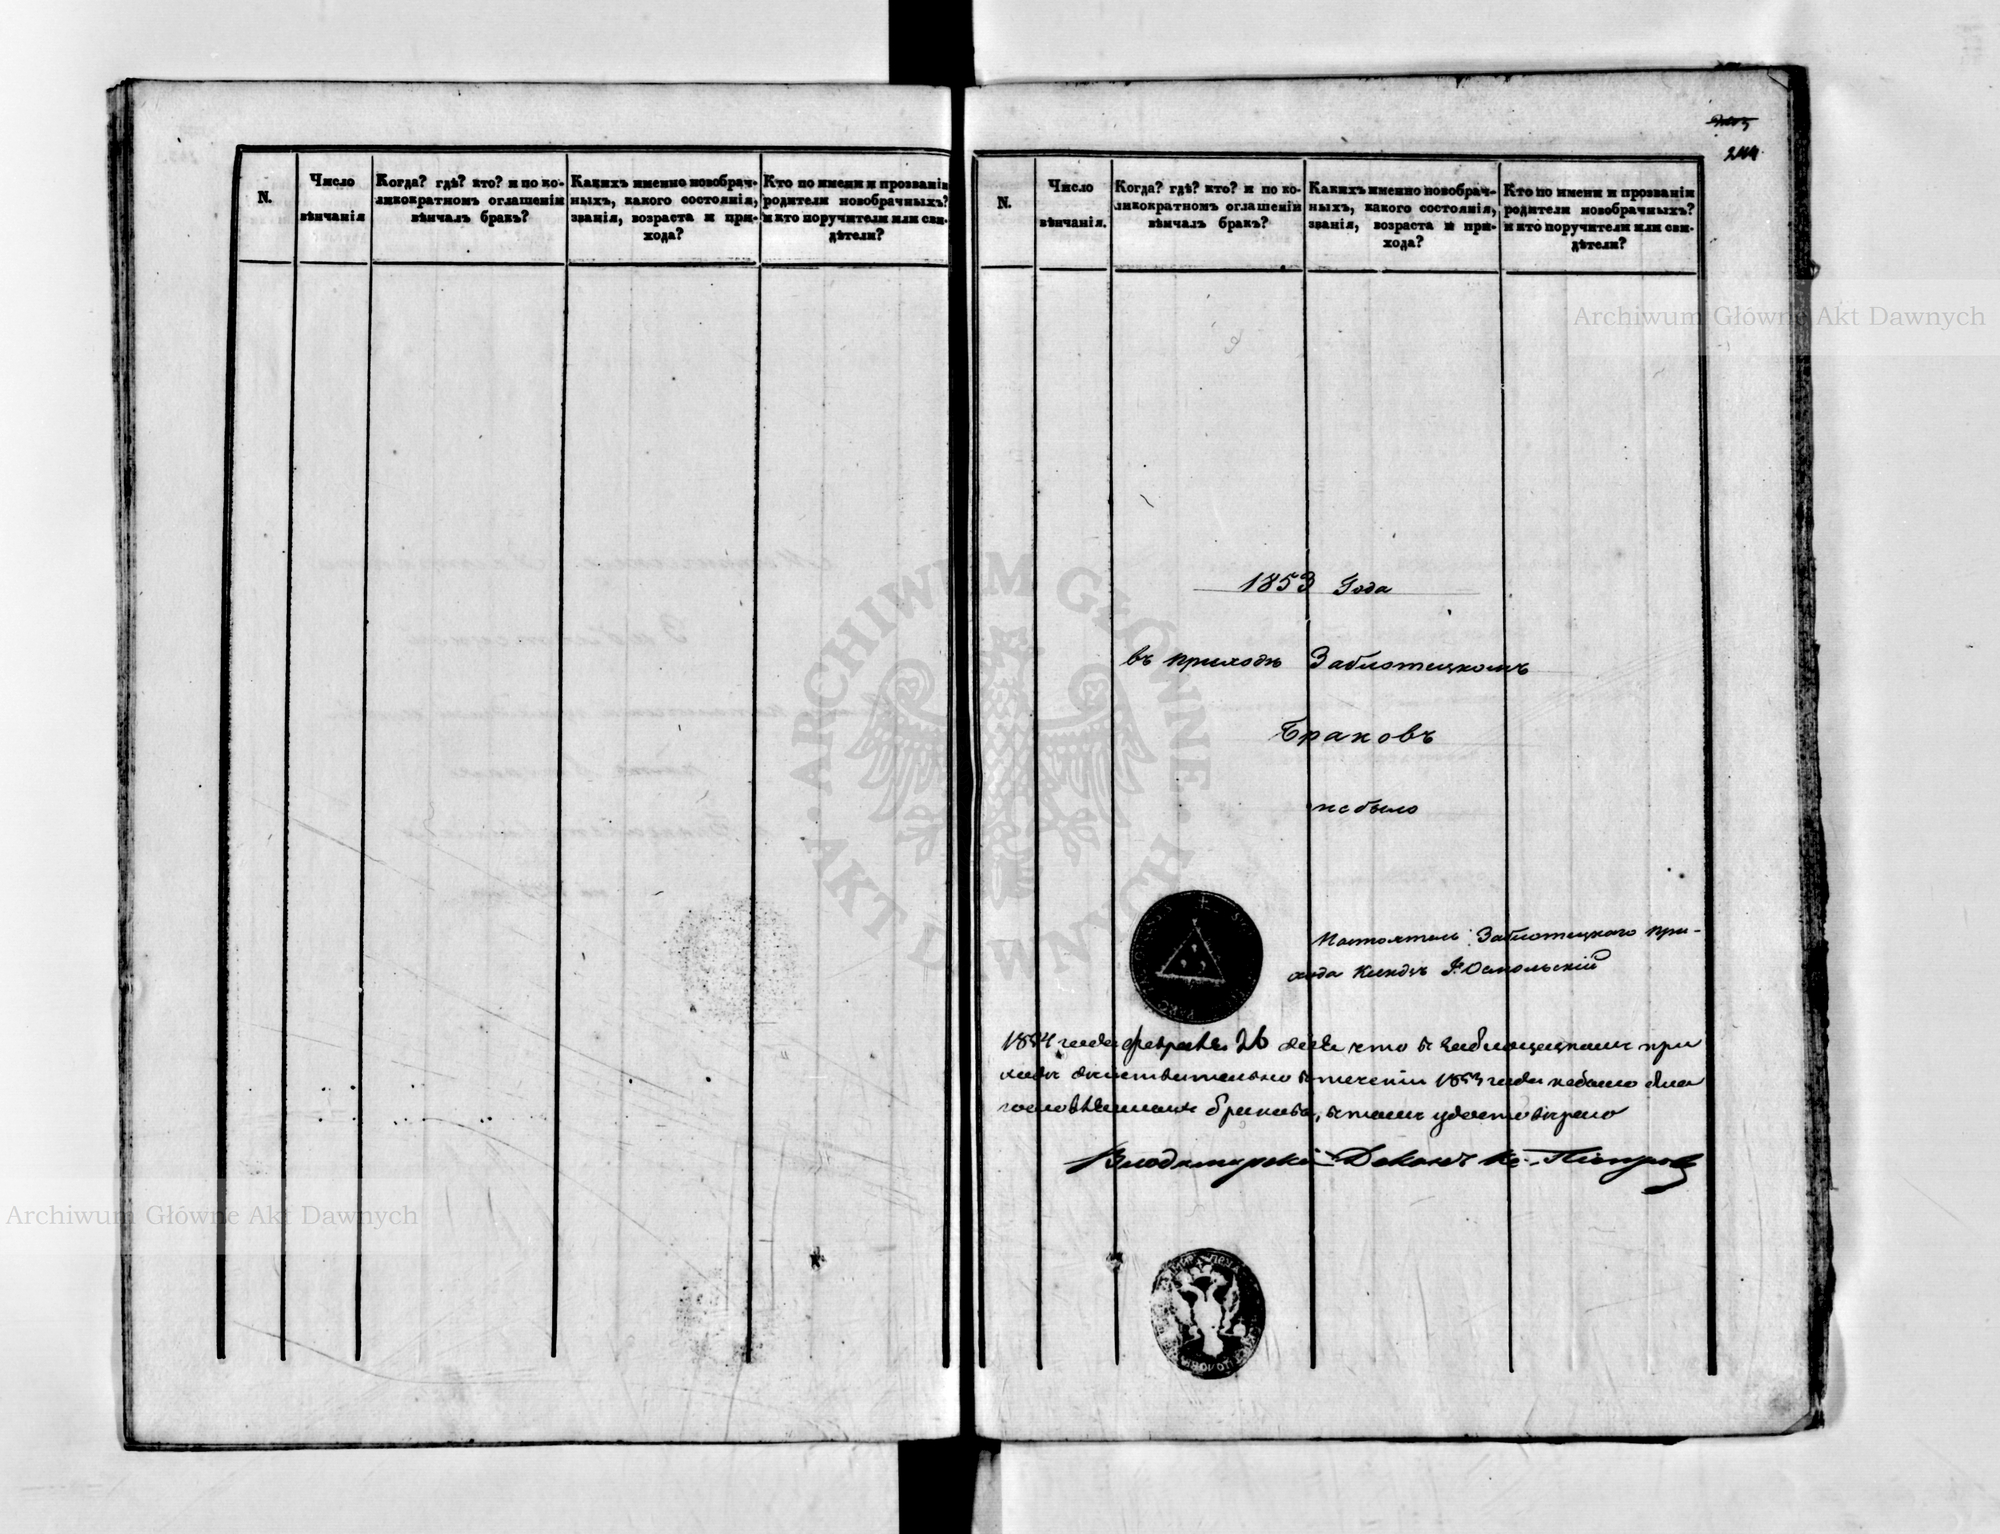 N.
Число
вѣнчанія
Когда? гдѣ? кто? и по ко-
ликократномъ оглашеніи
вѣнчалъ бракъ?
Какихъ именно новобрач-
ныхъ, какого состоянія,
званія, возраста и при-
хода?
Кто по имени и прозванію
родители новобрачныхъ?
и кто поручители или сви-
дѣтели?
244
N.
Число
вѣнчанія.
Когда? гдѣ? кто? и по ко-
ликократномъ оглашеніи
вѣнчалъ бракъ?
Какихъ именно новобрач-
ныхъ, какого состоянія,
званія, возраста и при-
хода?
Кто по имени и прозванію
родители новобрачныхъ?
и кто поручители или сви-
дѣтели?
Archiwum Główne Akt Dawnych
1853 Года
въ приходѣ Заблотецкомъ
Браковъ
небыло
ARCHIWUM GŁÓWNE AKT DAWNYCH
Настоятель Заблотецкаго при-
хода Ксендзъ Осмольскій
1854 года февраля 26 дня что въ Заблоцецкомъ при
ходѣ дѣйствительно втеченіи 1853 года небыло бла
гословѣнныхъ браковъ, втомъ удостовѣряю
Влодимирскій Деканъ Кс.
Archiwum Główne Akt Dawnych